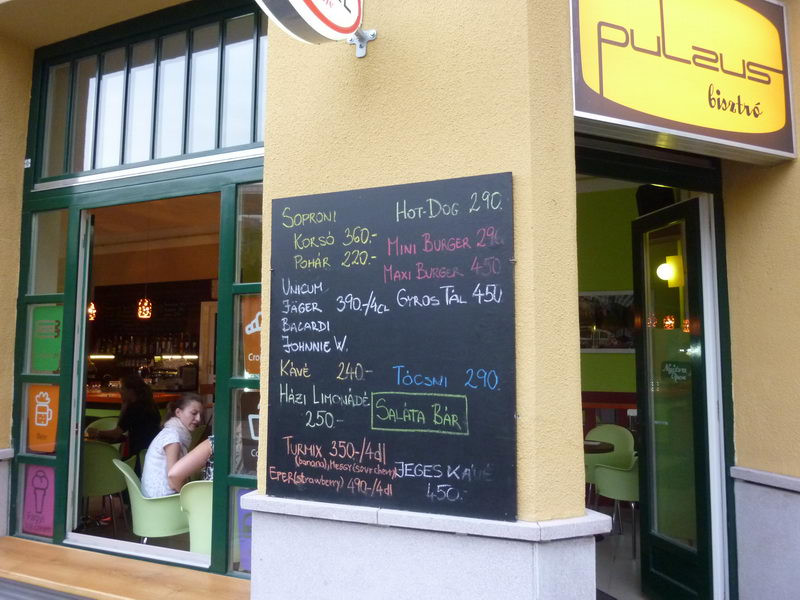 pulzus
bisztró
SOPRONI
KORSÓ 360.-
POHÁR 220.-
HOT-DOG 290.
MINI BURGER 290
MAXI BURGER 450
GYROS TÁL 450
UNICUM
JÄGER 390.-/4CL
BACARDI
JOHNNIE W.
KÁVÉ 240.-
TÓCSNI 290.
HÁZI LIMONÁDÉ
250.-
SALÁTA BÁR
TURMIX 350-/4dl
(banana), MEGGY (sour cherry)
EPER (strawberry) 490-/4dl
JEGES KÁVÉ
450.-
Beer
Nyitva
Open